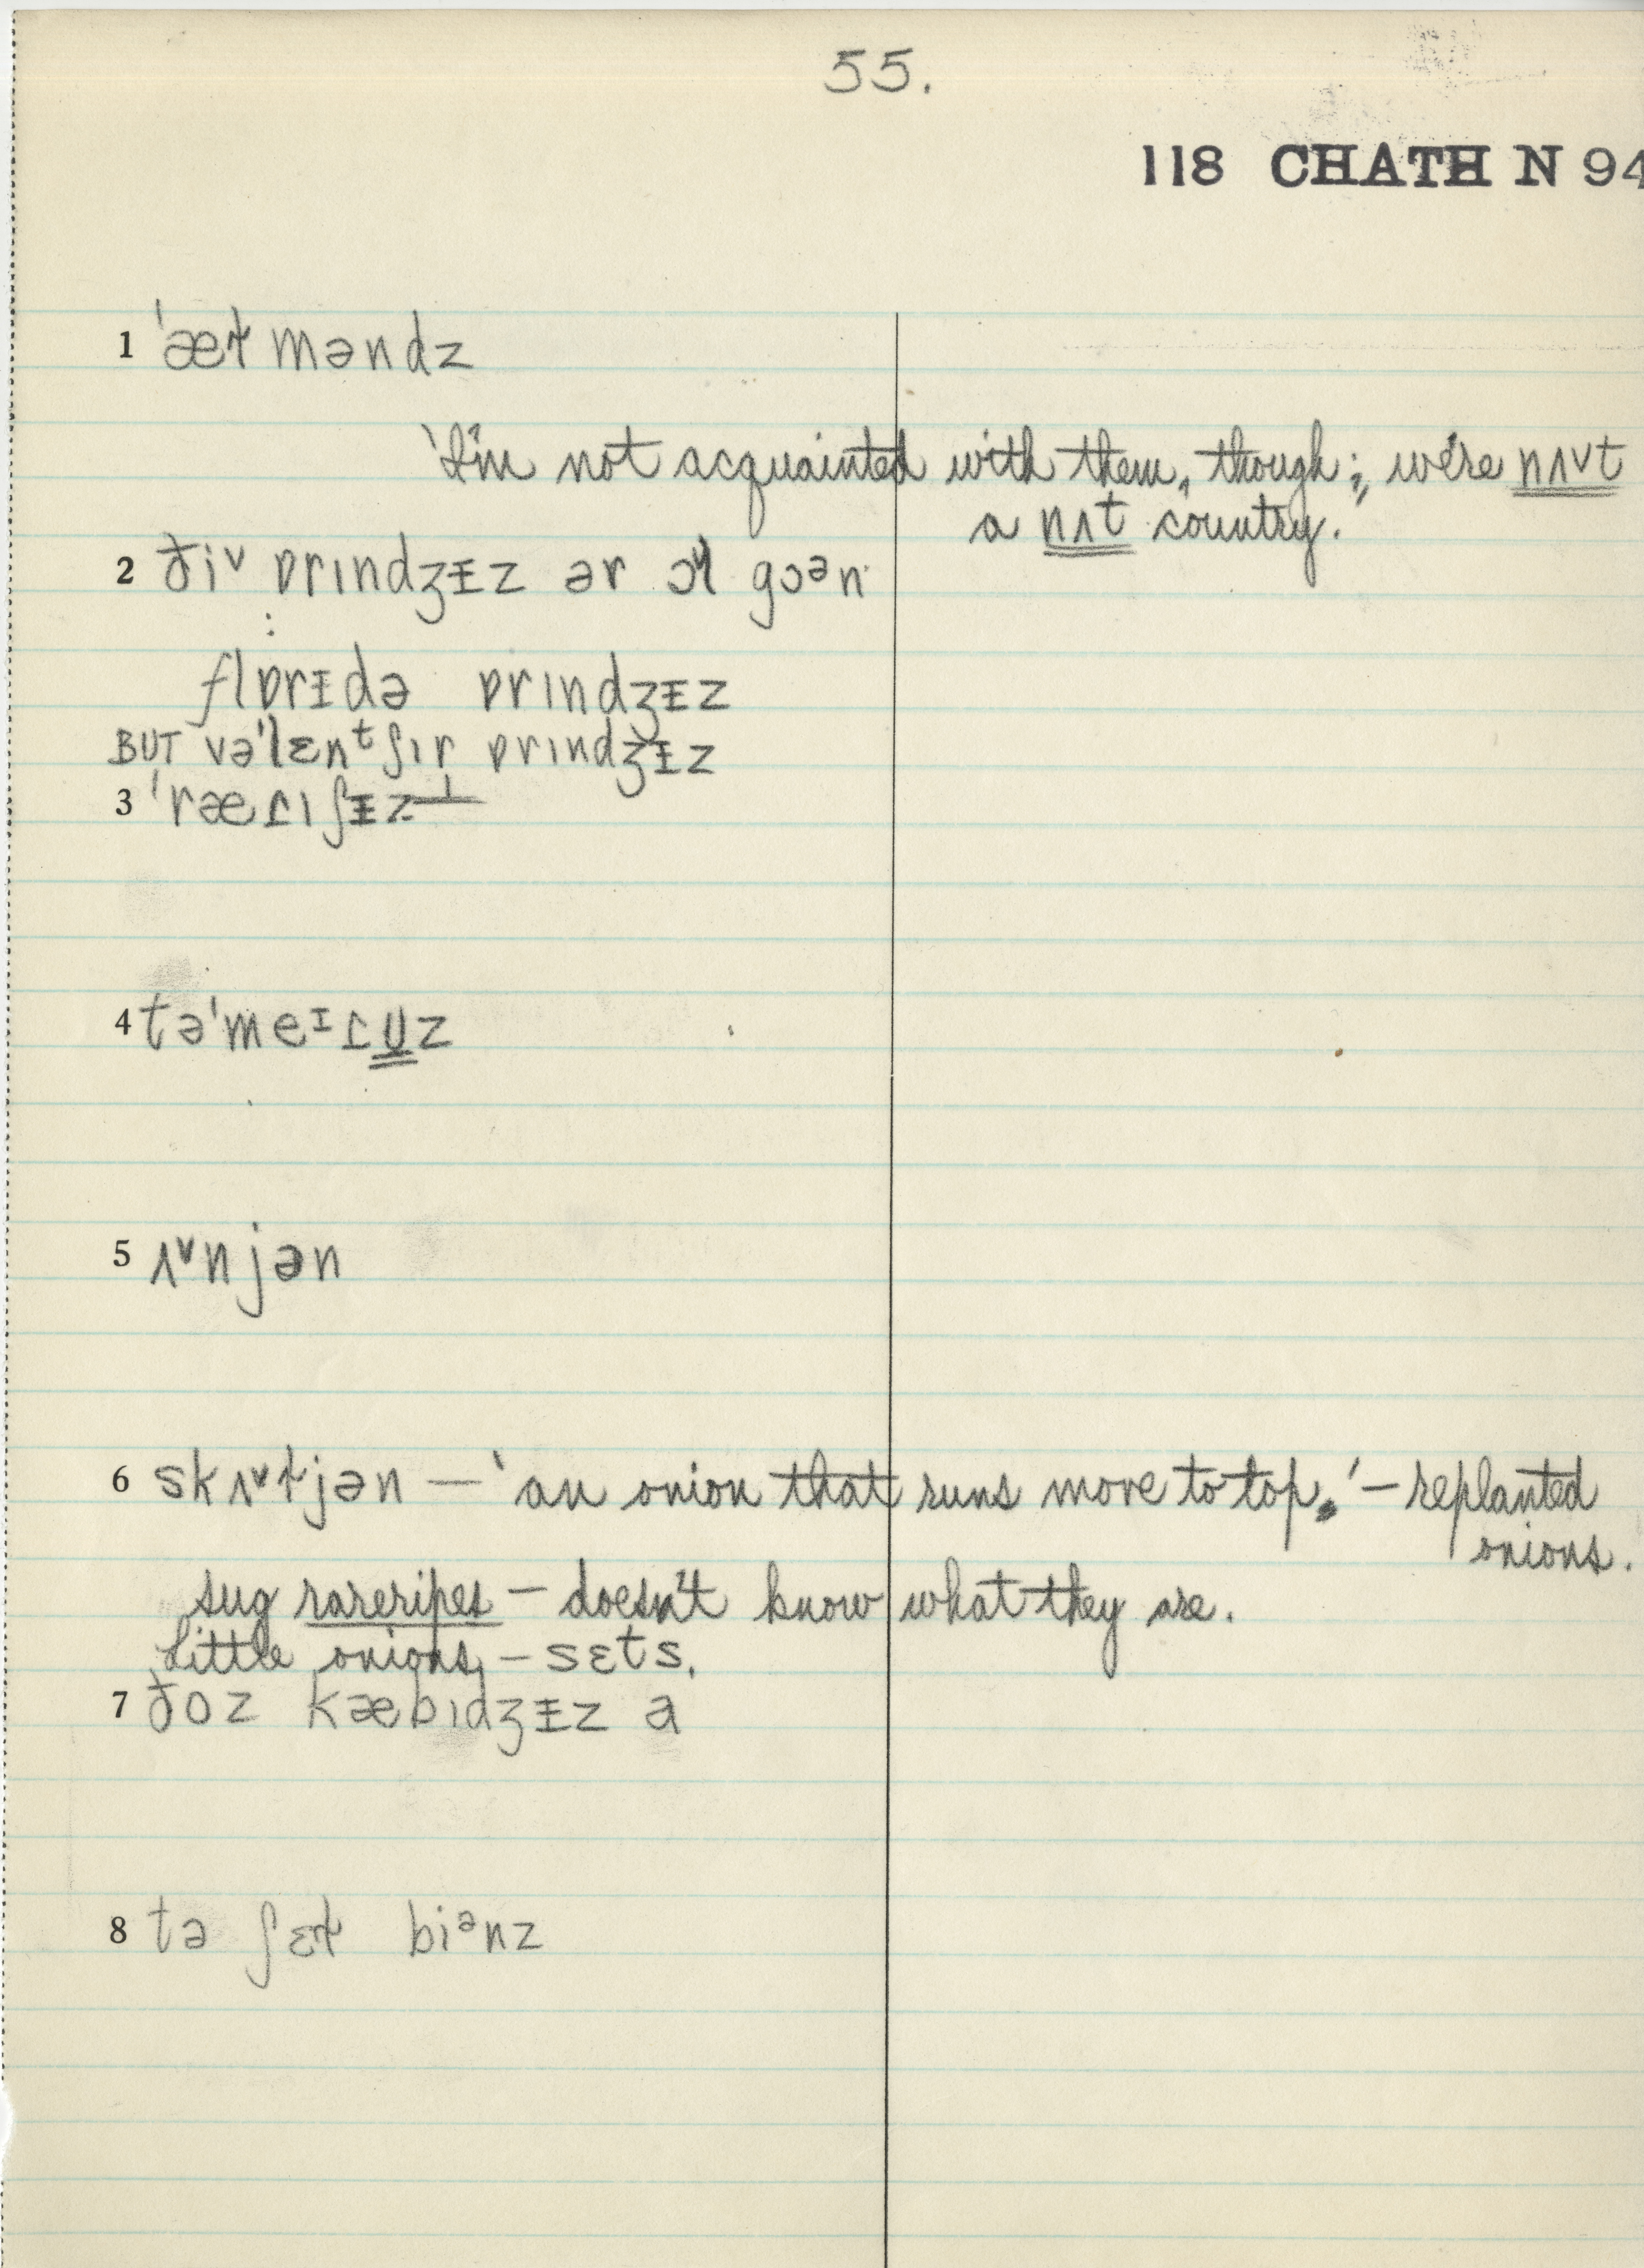 55.
118 CHATH N 94
1 ˈæɫməndz
'I'm not acquainted with them, though; we're nʌ˅t
a nʌt country.'
2 ði˅ ɒrɪndʒᵻz ər ɔɫ gɔᵊn
flɒrᵻdə ɒrɪndʒᵻz
BUT vəˈlɛnᵗʃɪr ɒrɪndʒᵻz
3 ˈræɾɪʃᵻz
4 təˈmeᶦɾᴜz
5 ʌ˅njən
6 skʌ˅ɫjən — 'an onion that runs move to top.' – replanted
onions.
sug rareripes – doesn't know what they are.
Little onions, – sɛts.
7 ðoz kæbɪdʒᵻz a
8 tə ʃɛɫ biᵊnz